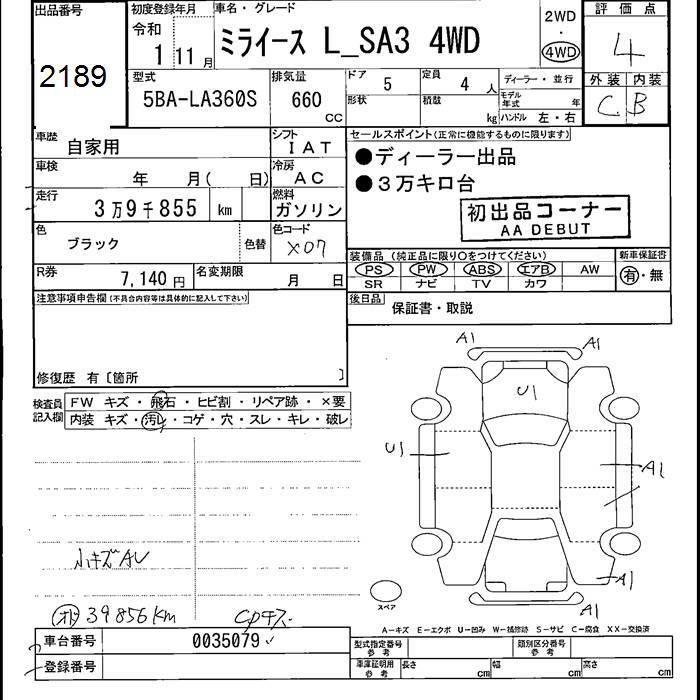 出品番号
2189
初度登録年月
令和
1 11月
車名・グレード
ミライース L_SA3 4WD
2WD
・
4WD
評価点
4
外装 内装
C B
型式
5BA-LA360S
排気量
660
CC
ドア
5
形状
定員
4 人
積数
kg
ディーラー・並行
モデル年式 年
ハンドル 左・右
車歴
自家用
シフト
IAT
車検
年 月( 日)
冷房
AC
走行
3万9千855 km
燃料
ガソリン
色
ブラック
色替
色コード
X07
R券
7,140円
名変期限
月 日
セールスポイント(正常に機能するものに限ります)
●ディーラー出品
●3万キロ台
初出品コーナー
AA DEBUT
装備品 (純正品に限り○をつけてください)
PS PW ABS エアB AW
SR ナビ TV カワ
新車保証書
有・無
後日品
保証書・取説
注意事項申告欄(不具合内容等は具体的に記入して下さい)
修復歴 有〔箇所 〕
検査員記入欄
FW キズ・飛石・ヒビ割・リペア跡・×要
内装 キズ・汚レ・コゲ・穴・スレ・キレ・破レ
A1
A1
U1
U1
A1
A1
A1
小キズAU
オド 39856Km
スペア
A-キズ E-エクボ U-凹み W-補修跡 S-サビ C-腐食 XX-交換済
車台番号
0035079
登録番号
型式指定番号
参考
類別区分番号
参考
車庫証明用
参考
長さ cm
幅 cm
高さ cm